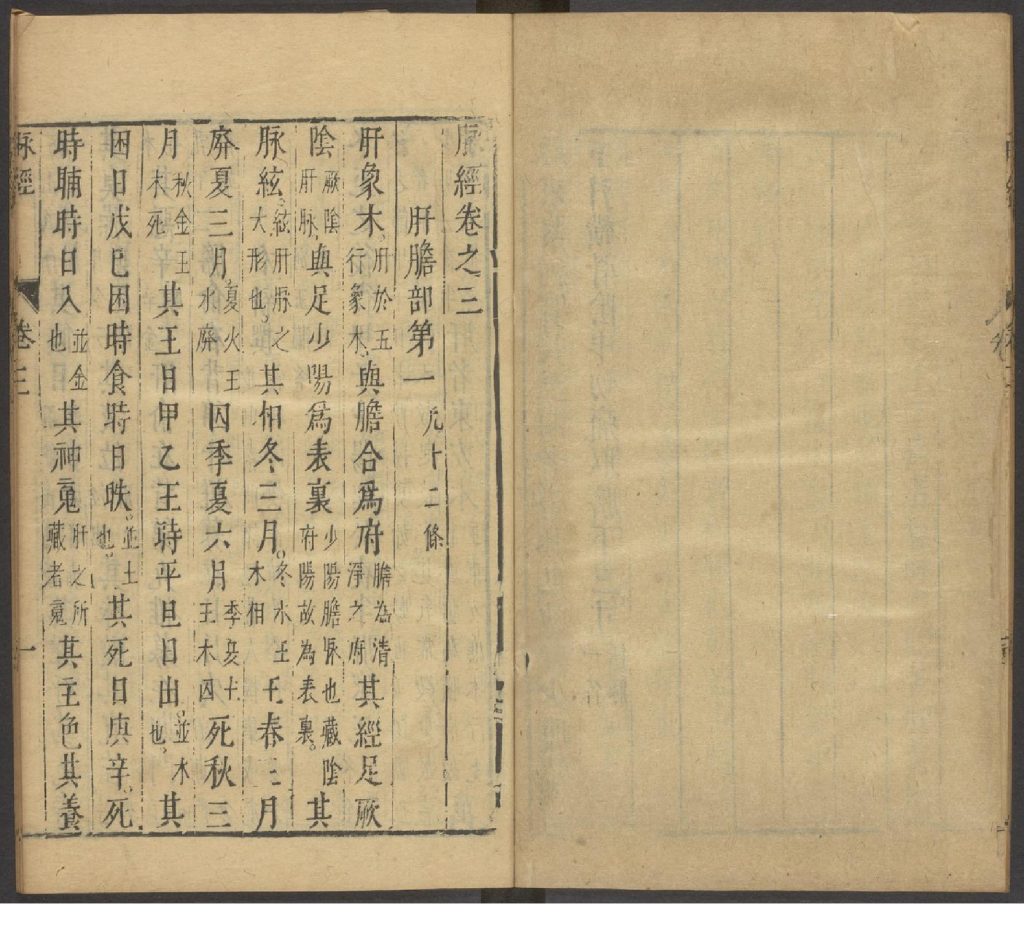 脉經卷之三
肝膽部第一 凡十二條
肝象木肝於五行象木與膽合爲府膽為清淨之府其經足厥
陰厥陰肝脉與足少陽爲表裏少陽膽脉也藏陰府陽故為表裏其
脉絃絃肝脉之大形也其相冬三月冬水王木相王春三月
廢夏三月夏火王木廢囚季夏六月季夏土王木囚死秋三
月秋金王木死其王日甲乙王時平旦日出並木也其
困日戊巳困時食時日昳並土也其死日庚辛死
時晡時日入並金也其神䰟肝之所藏者䰟其主色其養
脉經 卷三 一